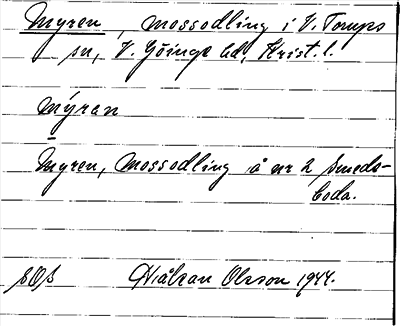 Myren, mossodling i V. Torups
sn, V. Göinge hd, Krist. l.
mýran
Myren, mossodling å nr 2 Smeds-
boda.
Håkan Olsson 1944.